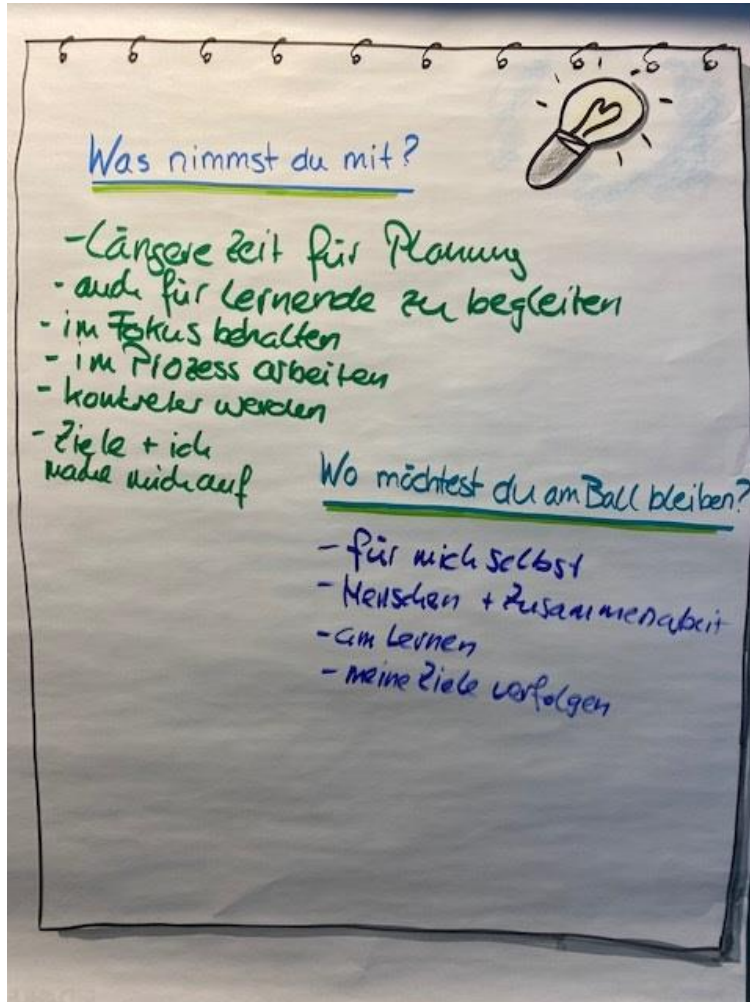 Was nimmst du mit?
- Längere Zeit für Planung
- auch für Lernende zu begleiten
- im Fokus behalten
- im Prozess arbeiten
- konkreter werden
- Ziele + ich
mache mich auf
Wo möchtest du am Ball bleiben?
- für mich selbst
- Menschen + Zusammenarbeit
- am Lernen
- meine Ziele verfolgen